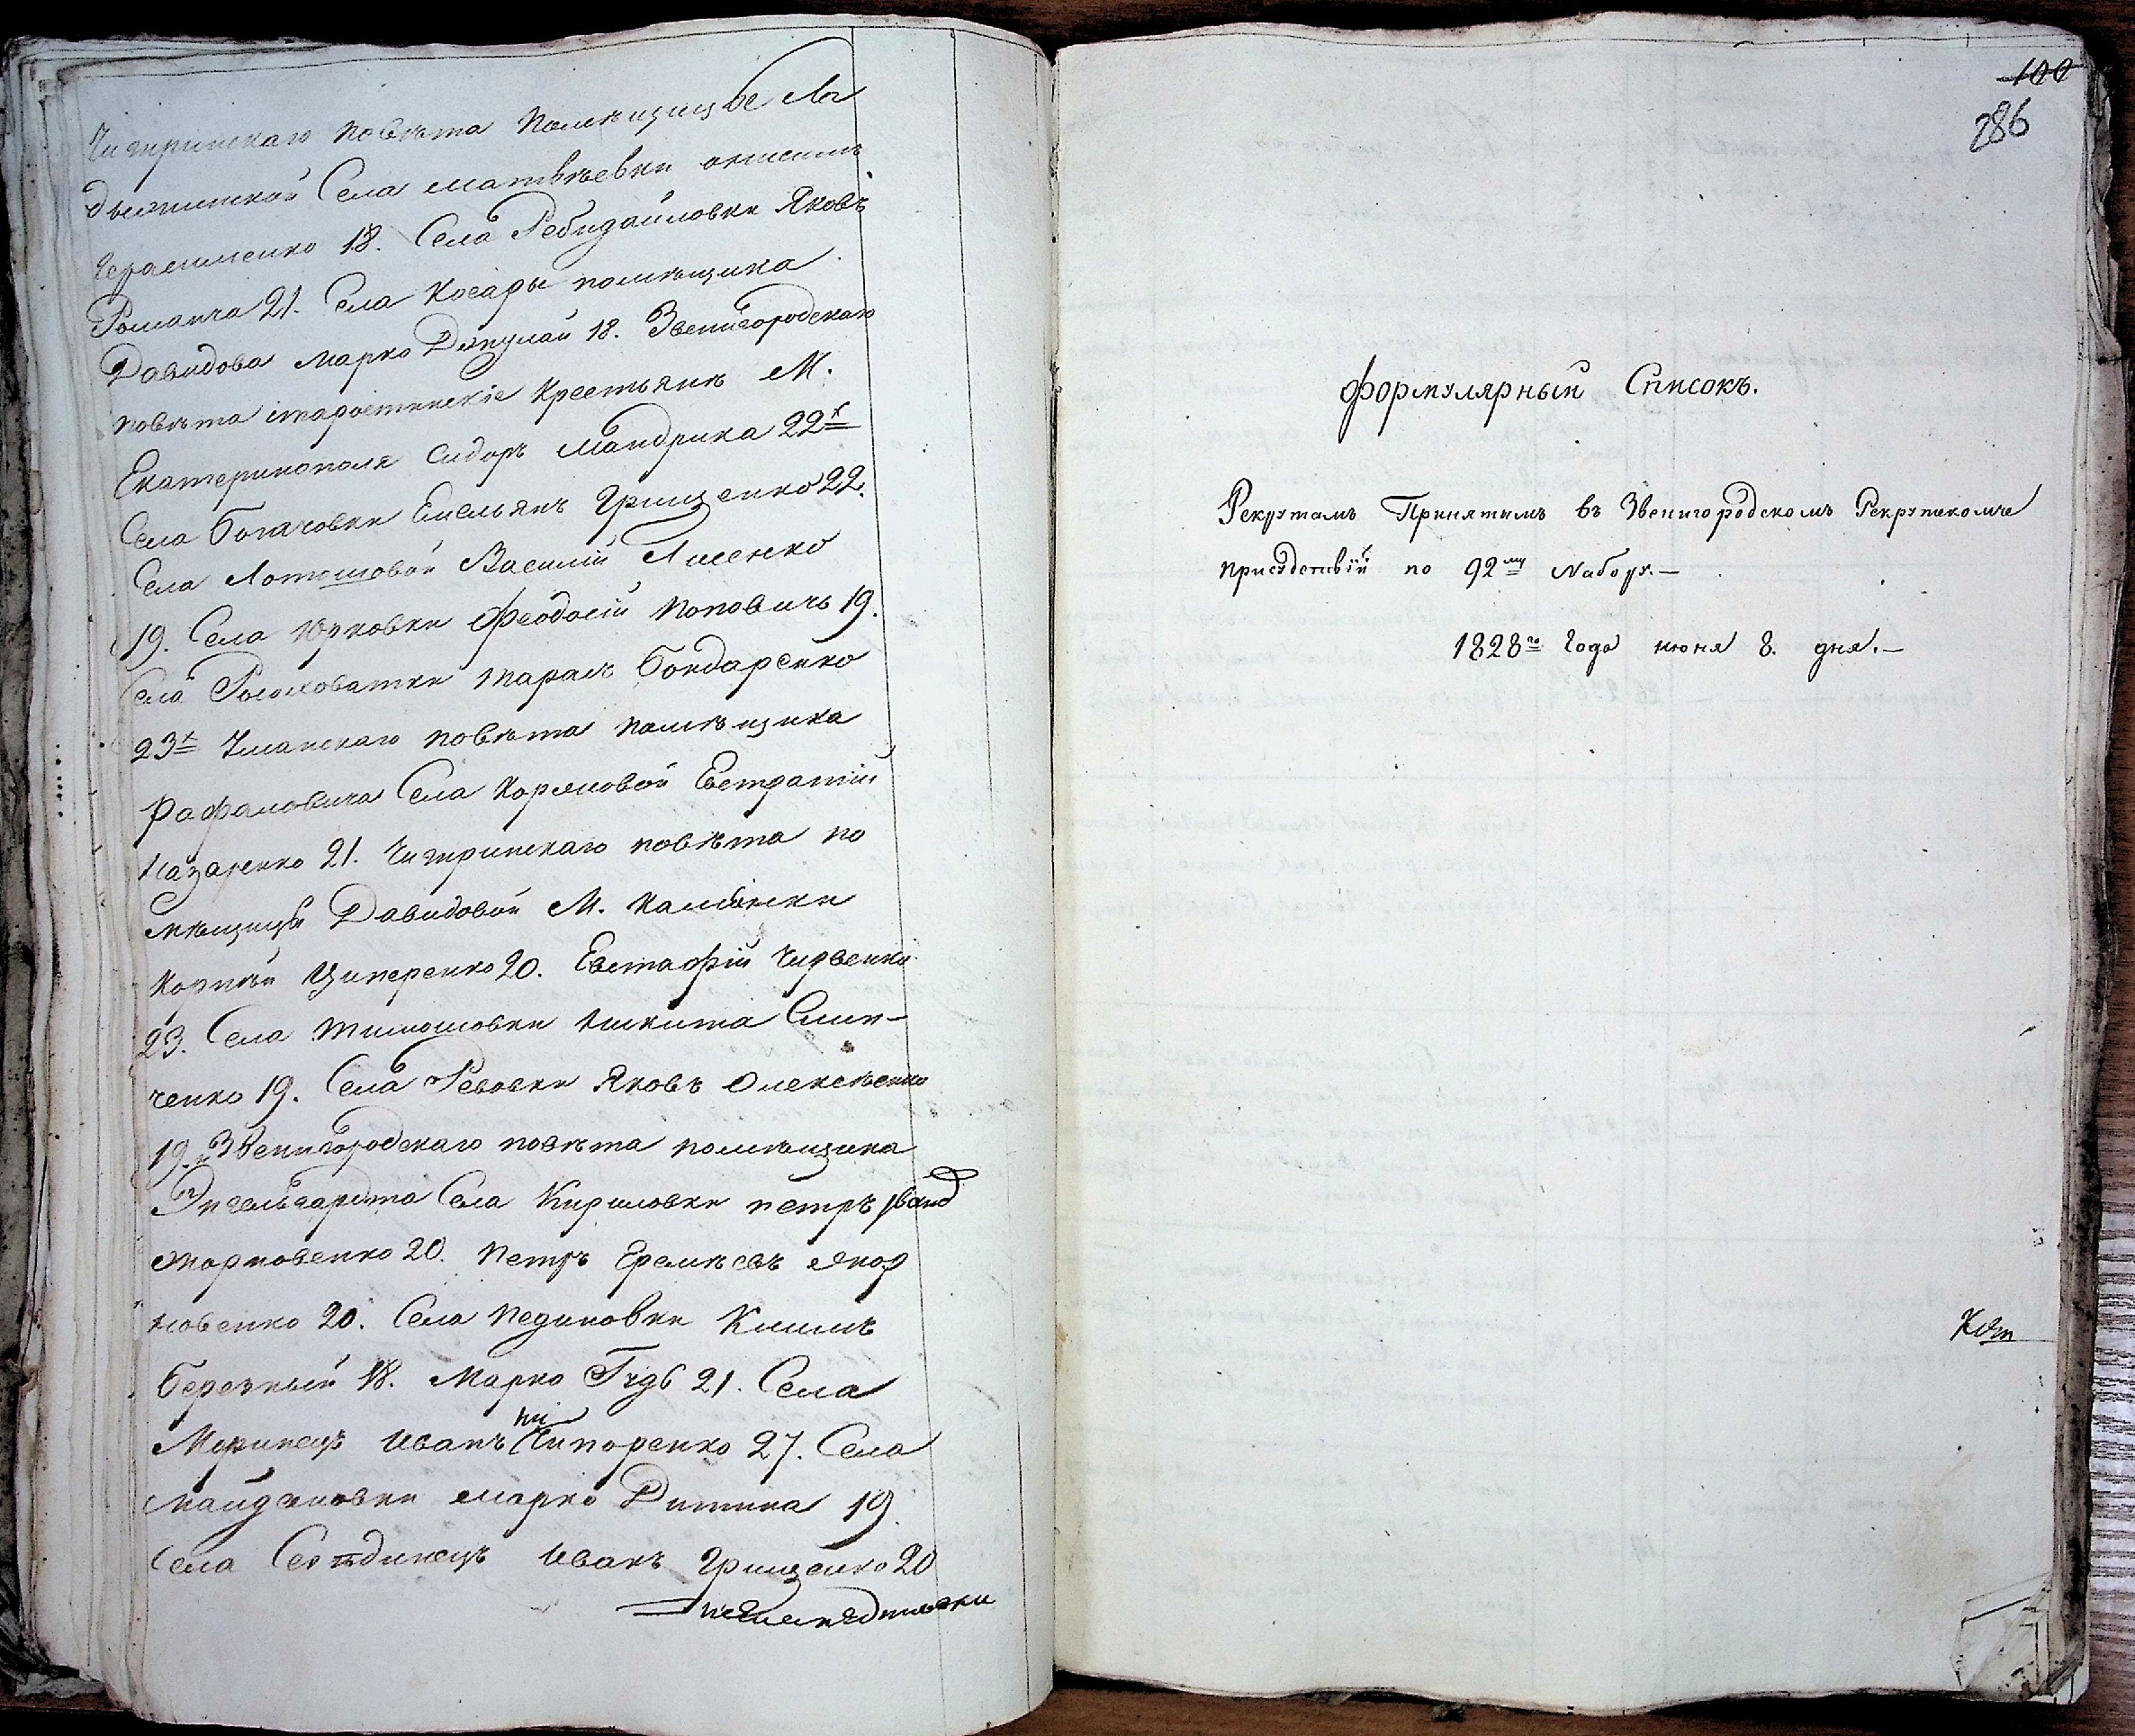 Чигиринскаго повѣта помѣщицы Ло
Села матвѣевки
Герасименко 18. Села Ребидайловки Яковъ
21. Села Косары помѣщика
Давидова Марко 18. Звенигородскаго
повѣта старостинскіе Крестьянѣ М.
Екатеринополя Сидоръ Мандрика 22х
Села Богачовки Емельянъ Грищенко 22.
Села Василій Лисенко
19. Села Юрковки Феодосій Поповичъ 19.
Села Тарасъ Бондаренко
23х Уманскаго повѣта помѣщика
Рафаловича Села Корсуновой Евстратій
Назаренко 21. Чигиринскаго повѣта по
мѣщицы Давидовой М. Камѣнки
Корнѣй Циперенко 20. Евстафій
23. Села тимошовки Никита Слип-
ченко 19. Села Ревовки Яковъ Олексѣенко
19. Звенигородскаго повѣта помѣщика
Энгельгардта Села Кириловки петръ
20. Петръ Еремѣевъ
новенко 20. Села пединовки Климъ
Березный 18. Марко 21. Села
Моринецъ Иванъ ни Чипоренко 27. Села
майдановки марко 19.
Села Иванъ Грищенко 20
100
286
Формулярный Списокъ.
Рекрутамъ Принятымъ въ Звенигородскомъ Рекрутскомъ
присудствій по 92му Набору.—
1828го Года июня 8. дня.—